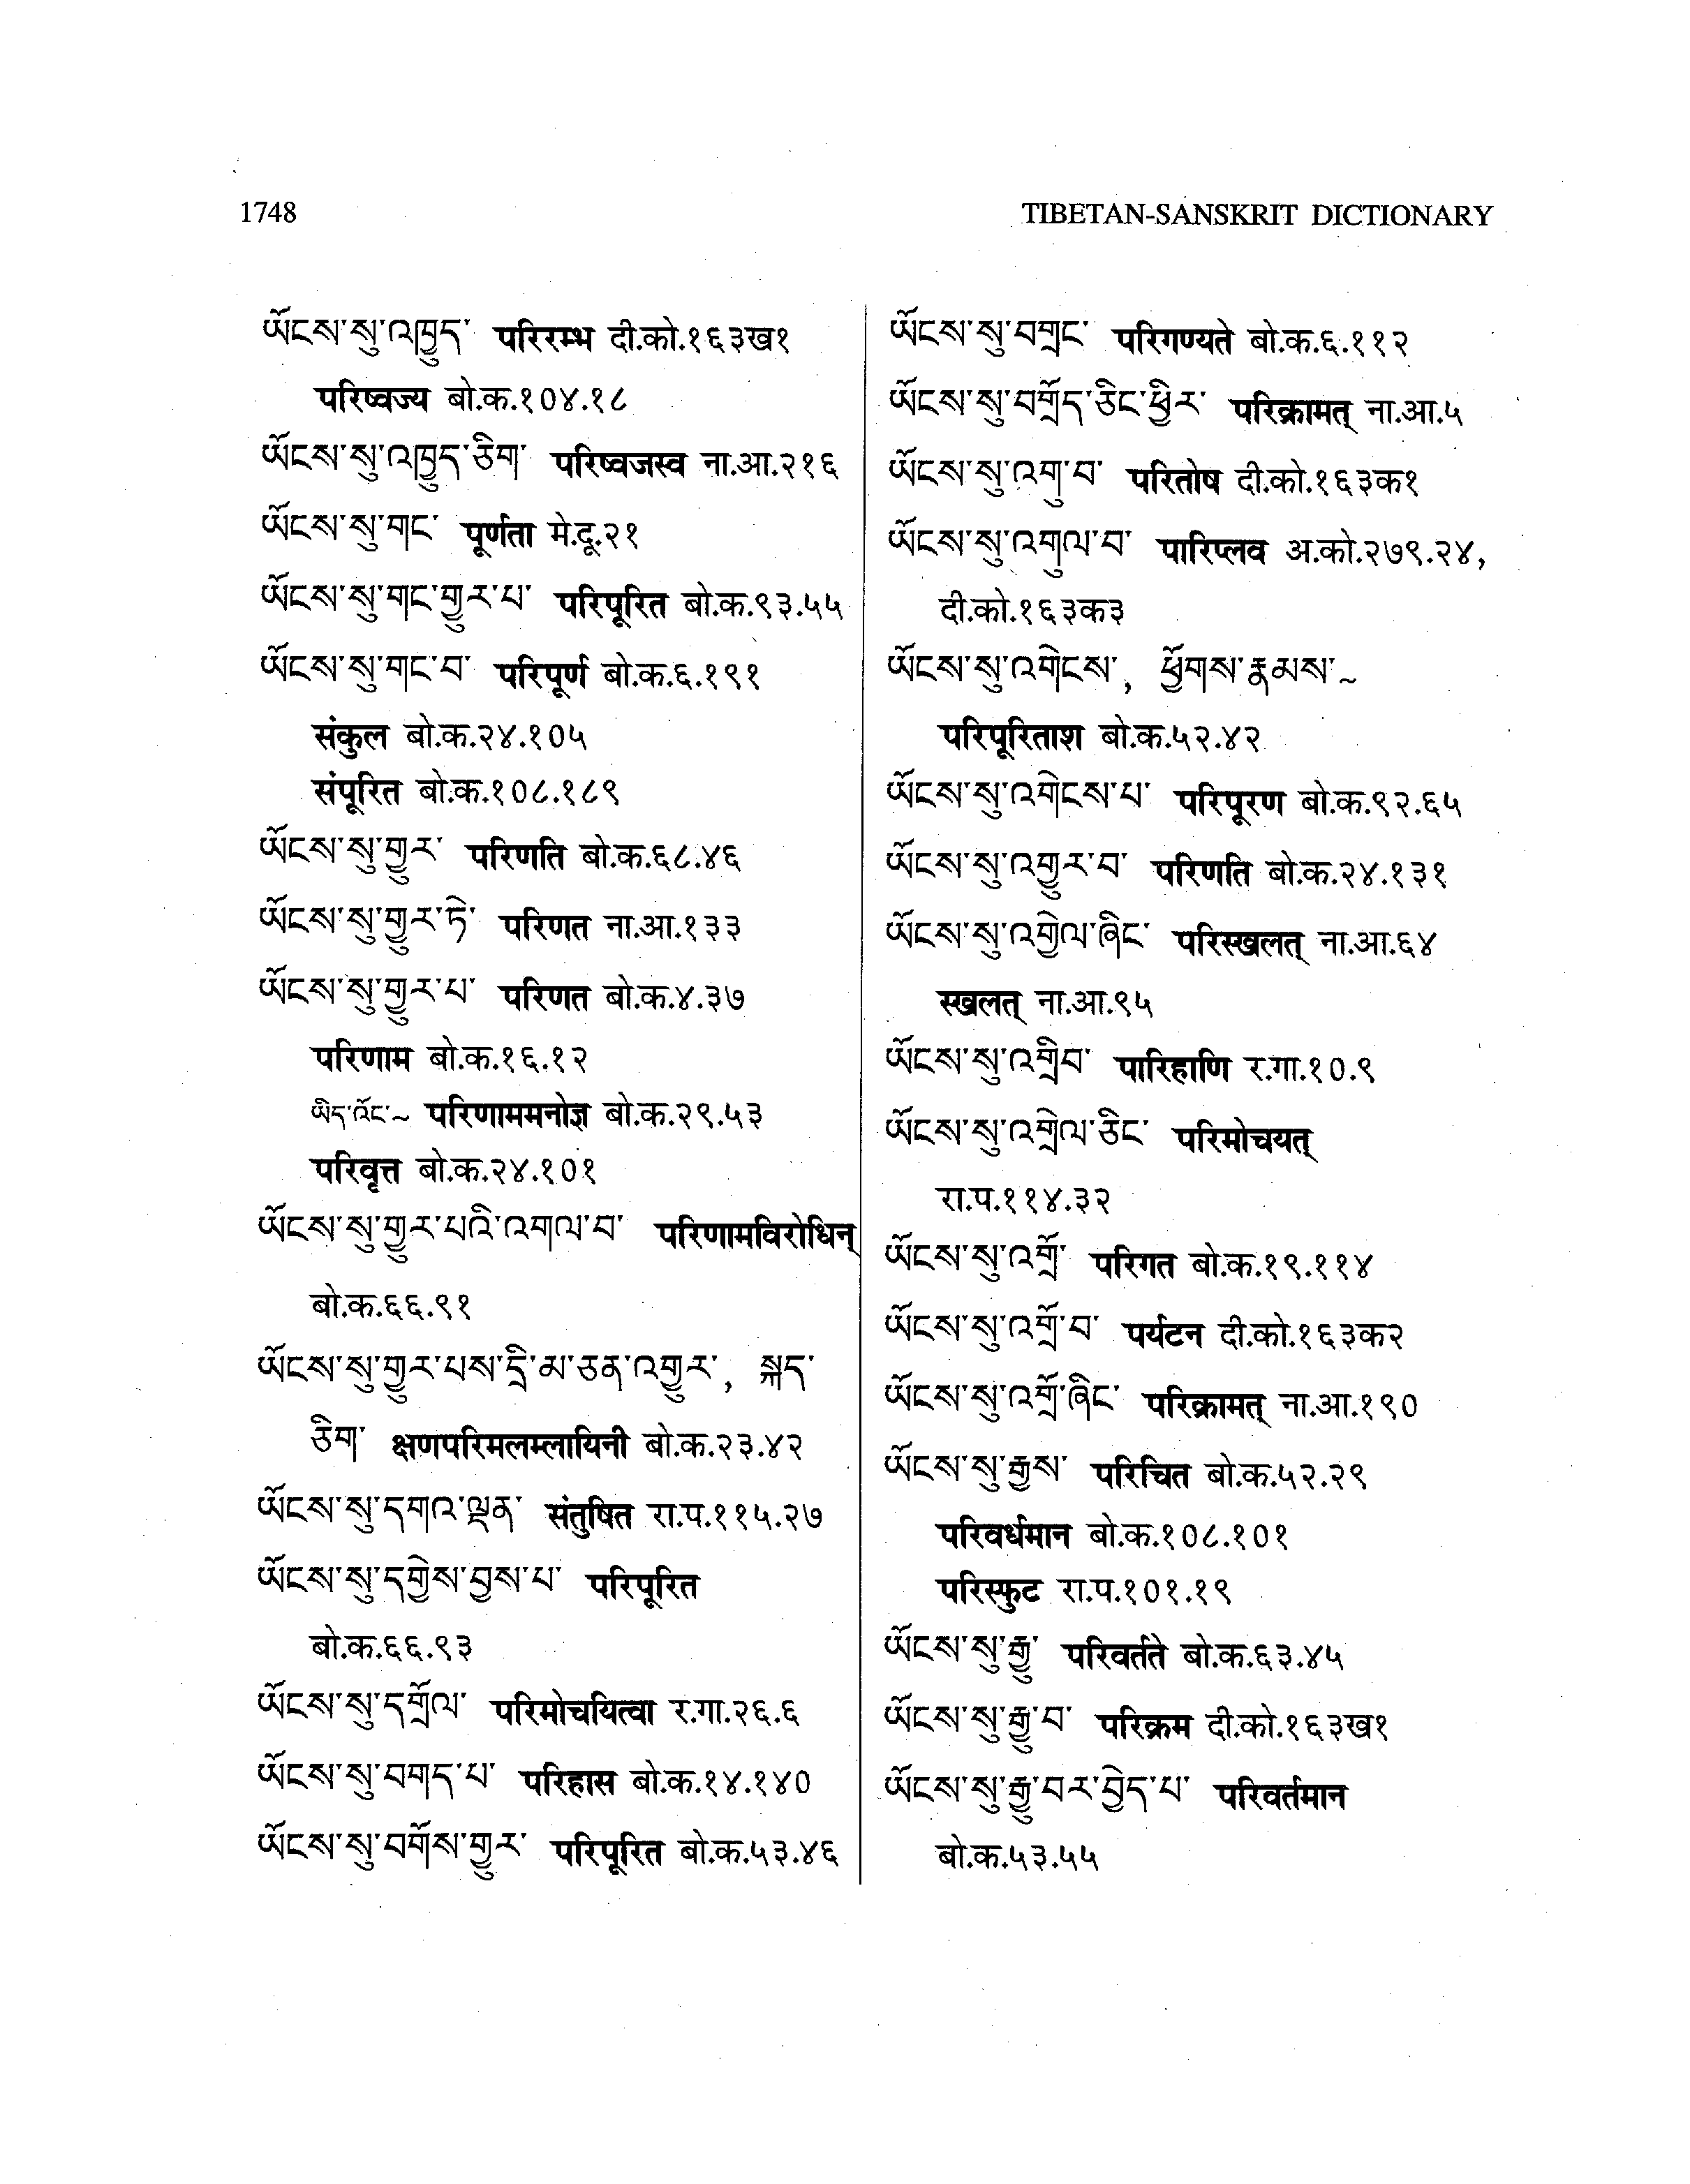 1748
TIBETAN-SANSKRIT DICTIONARY
ཡོངས་སུ་འཁྱུད་ परिरम्भ दी.को.१६३ख१
परिष्वज्य बो.क.१०४.१८
ཡོངས་སུ་འཁྱུད་ཅིག་ परिष्वजस्व ना.आ.२१६
ཡོངས་སུ་གང་ पूर्णता मे.दू.२१
ཡོངས་སུ་གང་གྱུར་པ་ परिपूरित बो.क.९३.५५
ཡོངས་སུ་གང་བ་ परिपूर्ण बो.क.६.१९१
संकुल बो.क.२४.१०५
संपूरित बो.क.१०८.१८९
ཡོངས་སུ་གྱུར་ परिणति बो.क.६८.४६
ཡོངས་སུ་གྱུར་ཏེ་ परिणत ना.आ.१३३
ཡོངས་སུ་གྱུར་པ་ परिणत बो.क.४.३७
परिणाम बो.क.१६.१२
ཡིད་འོང་~ परिणाममनोज्ञ बो.क.२९.५३
परिवृत्त बो.क.२४.१०१
ཡོངས་སུ་གྱུར་པའི་འགལ་བ་ परिणामविरोधिन्
बो.क.६६.९१
ཡོངས་སུ་གྱུར་པས་དྲི་མ་ཅན་འགྱུར་, སྐད་
ཅིག་ क्षणपरिमलम्लायिनी बो.क.२३.४२
ཡོངས་སུ་དགའ་ལྡན་ संतुषित रा.प.११५.२७
ཡོངས་སུ་དགྱེས་བྱས་པ་ परिपूरित
बो.क.६६.९३
ཡོངས་སུ་དགྲོལ་ परिमोचयित्वा र.गा.२६.६
ཡོངས་སུ་བགད་པ་ परिहास बो.क.१४.१४०
ཡོངས་སུ་བགོས་གྱུར་ परिपूरित बो.क.५३.४६
ཡོངས་སུ་བགྲང་ परिगण्यते बो.क.६.११२
ཡོངས་སུ་བགྲོད་ཅིང་ཕྱིར་ परिक्रामत् ना.आ.५
ཡོངས་སུ་འགུ་བ་ परितोष दी.को.१६३क१
ཡོངས་སུ་འགུལ་བ་ पारिप्लव अ.को.२७९.२४,
दी.को.१६३क३
ཡོངས་སུ་འགེངས་, ཕྱོགས་རྣམས་~
परिपूरिताश बो.क.५२.४२
ཡོངས་སུ་འགེངས་པ་ परिपूरण बो.क.९२.६५
ཡོངས་སུ་འགྱུར་བ་ परिणति बो.क.२४.१३१
ཡོངས་སུ་འགྱེལ་ཞིང་ परिस्खलत् ना.आ.६४
स्खलत् ना.आ.९५
ཡོངས་སུ་འགྲིབ་ पारिहाणि र.गा.१०.९
ཡོངས་སུ་འགྲེལ་ཅིང་ परिमोचयत्
रा.प.११४.३२
ཡོངས་སུ་འགྲོ་ परिगत बो.क.१९.११४
ཡོངས་སུ་འགྲོ་བ་ पर्यटन दी.को.१६३क२
ཡོངས་སུ་འགྲོ་ཞིང་ परिक्रामत् ना.आ.१९०
ཡོངས་སུ་རྒྱས་ परिचित बो.क.५२.२९
परिवर्धमान बो.क.१०८.१०१
परिस्फुट रा.प.१०१.१९
ཡོངས་སུ་རྒྱུ་ परिवर्तते बो.क.६३.४५
ཡོངས་སུ་རྒྱུ་བ་ परिक्रम दी.को.१६३ख१
ཡོངས་སུ་རྒྱུ་བར་བྱེད་པ་ परिवर्तमान
बो.क.५३.५५